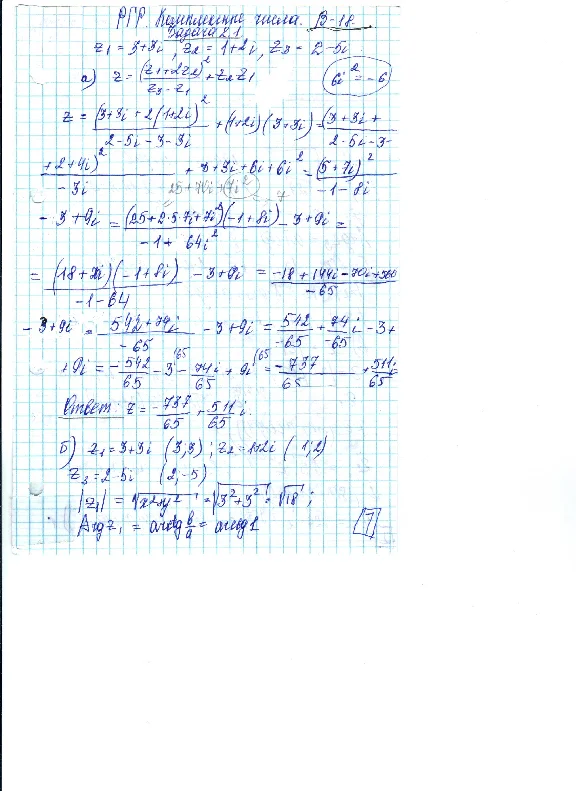 РГР. Комплексные числа. В-18.
Задача 2.1
z₁ = 3+3i, z₂ = 1+2i, z₃ = 2-5i
а) z = (z₁+2z₂)²/(z₃-z₁) + z₂z₁
6i² = -6
z = (3+3i+2(1+2i))²/(2-5i-3-3i) + (1+2i)(3+3i) = (3+3i+
2-5i-3-
+2+4i)²/(-3i) + 3+3i+6i+6i² = (5+7i)²/(-1-8i)
25+70i+7i² = -7
-3+9i = (25+2·5·7i+7i²)(-1+8i)/(-1+64i²) -3+9i =
= (18+70i)(-1+8i)/(-1-64) -3+9i = (-18+144i-70i+560)/(-65)
-3+9i = (542+74i)/(-65) -3+9i = 542/(-65) + 74/(-65) i -3+
+9i = -542/65 - 3^(65 - 74i/65 + 9i^(65 = -737/65 + 511i/65
Ответ: z = -737/65 + 511/65 i.
Б) z₁ = 3+3i (3;3); z₂ = 1+2i (1;2)
z₃ = 2-5i (2;-5)
|z₁| = √(x²+y²) = √(3²+3²) = √18;
Arg z₁ = arctg b/a = arctg 1